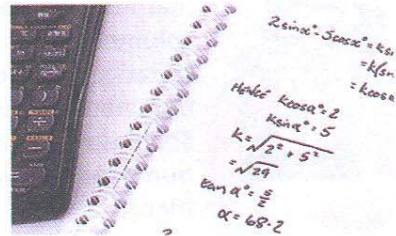 2sinx° - 5cosx° = ksi
= k(sin
= kcosa
Hence kcosα° = 2
ksinα° = 5
k = √2² + 5²
= √29
tan α° = 5/2
α = 68·2